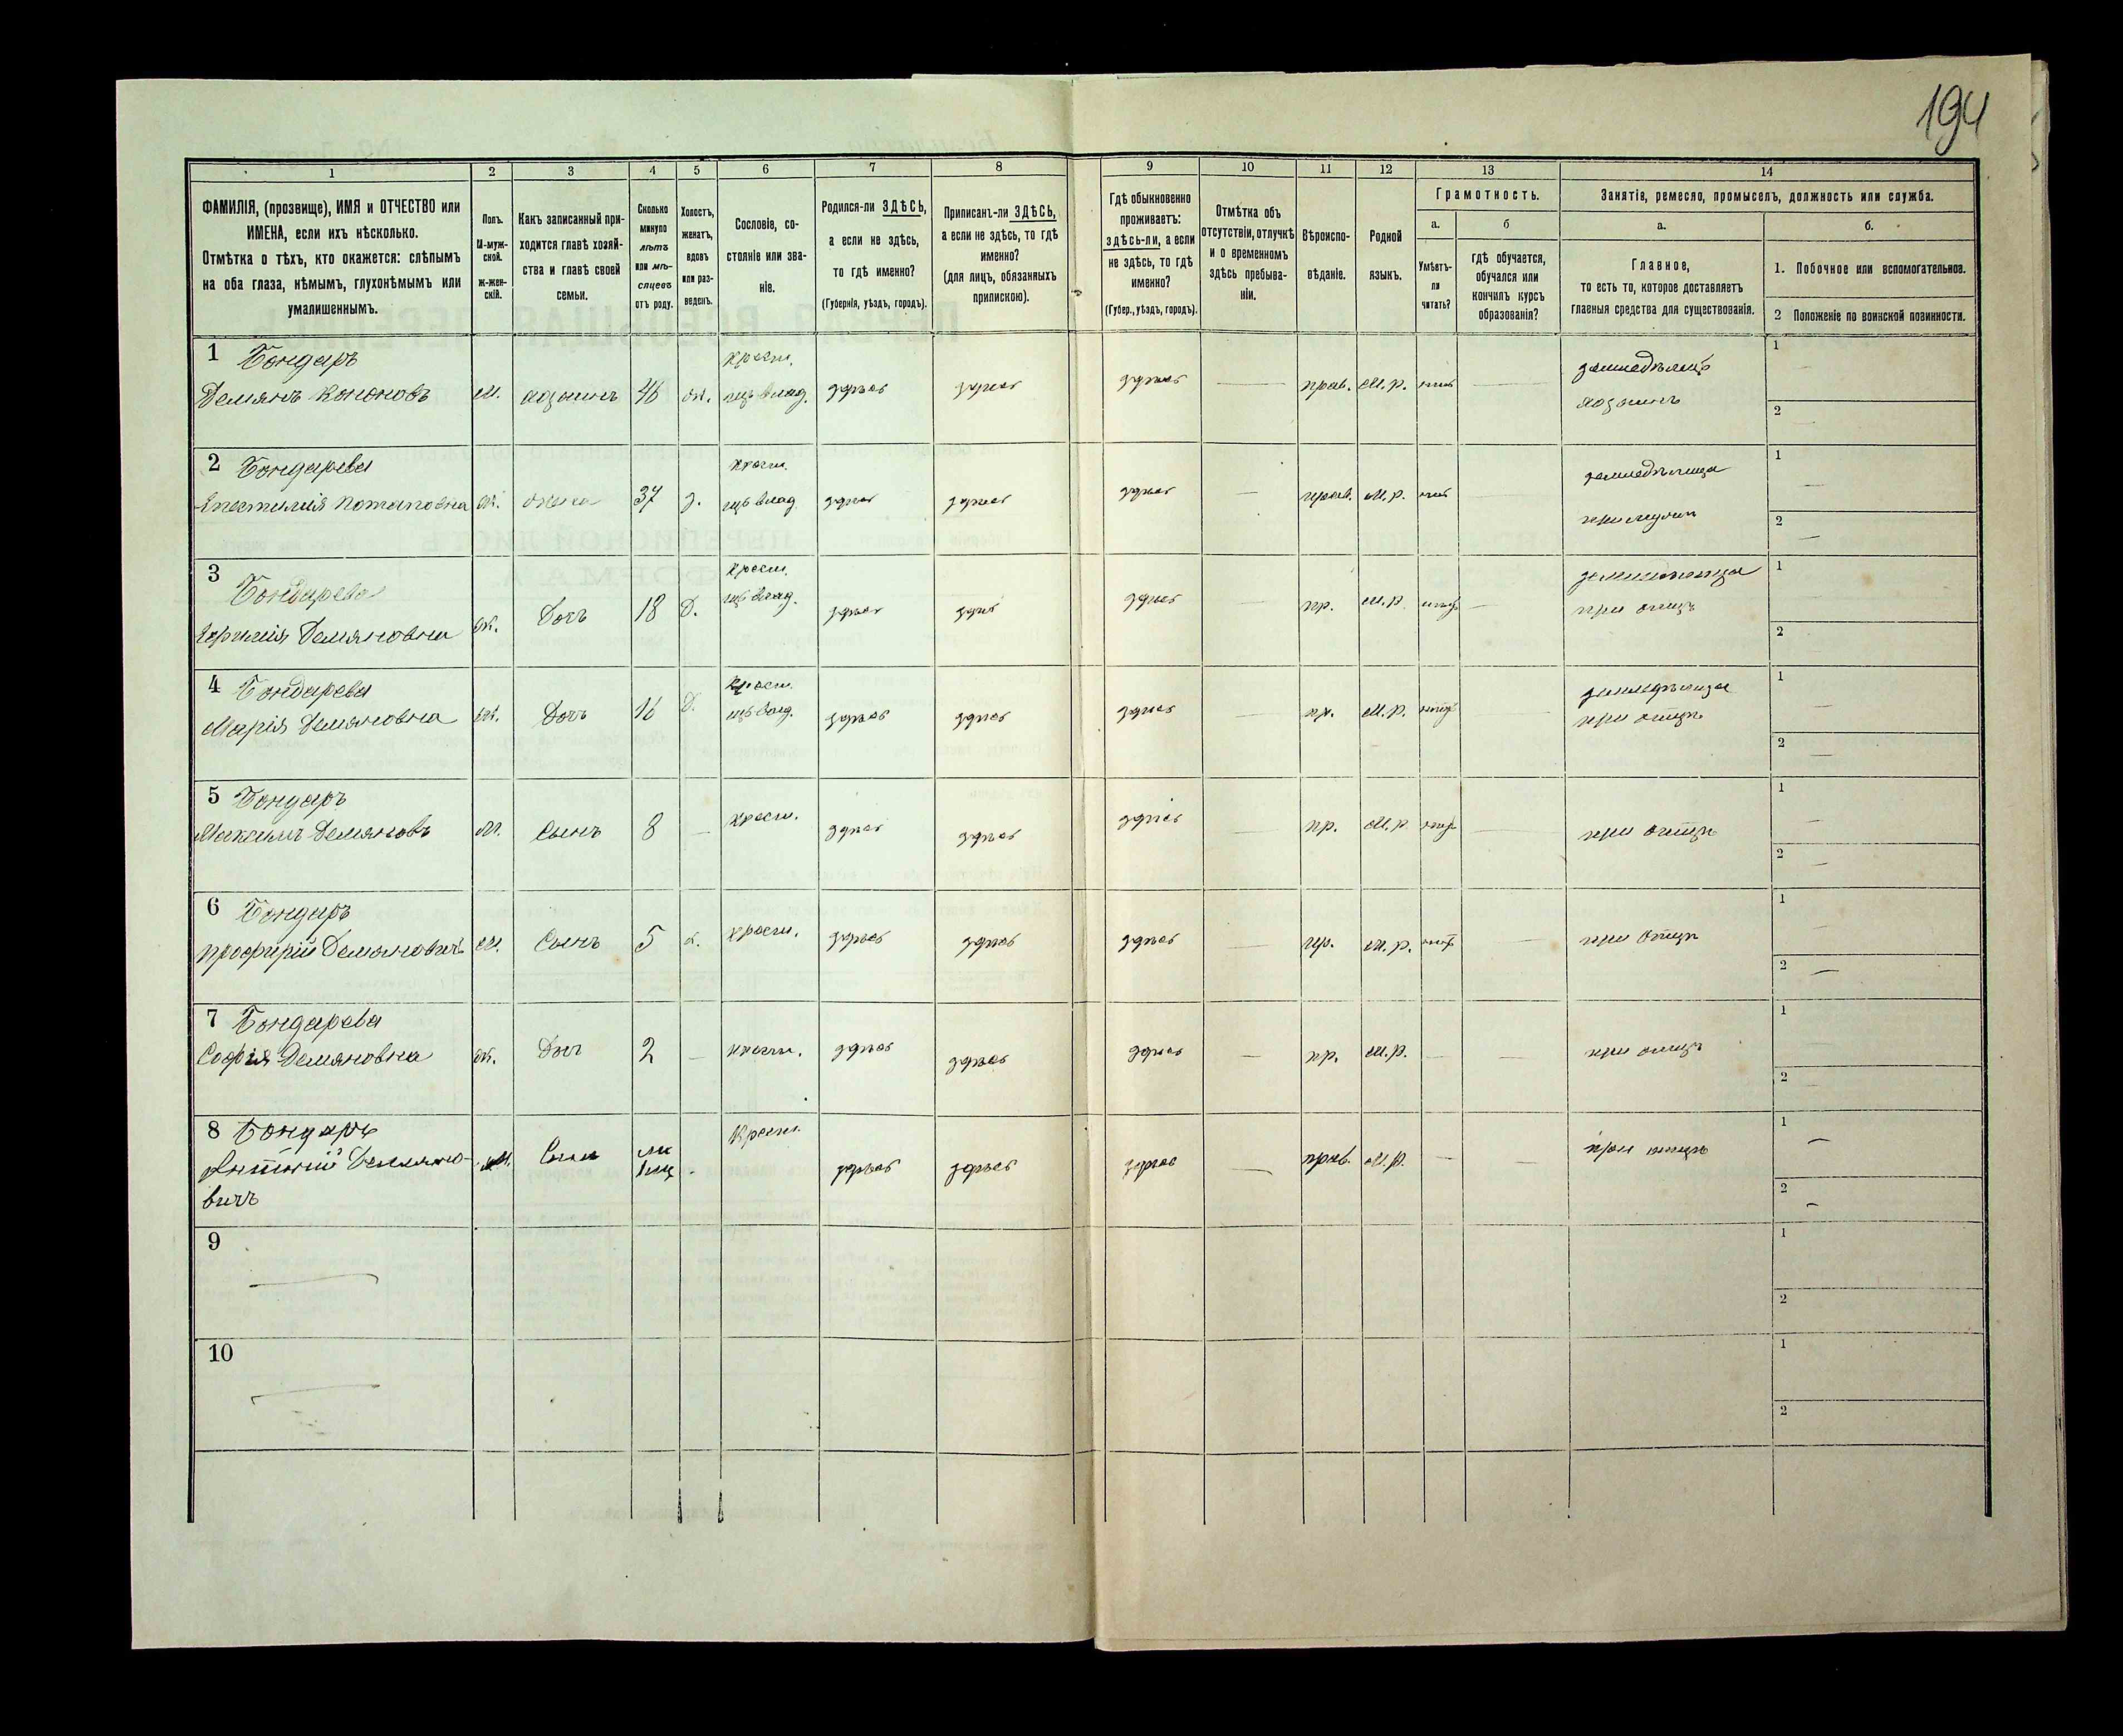 194
1
2
3
4
5
6
7
8
9
10
11
12
13
14
ФАМИЛІЯ, (прозвище), ИМЯ и ОТЧЕСТВО или
ИМЕНА, если ихъ нѣсколько.
Отмѣтка о тѣхъ, кто окажется: слѣпымъ
на оба глаза, нѣмымъ, глухонѣмымъ или
умалишеннымъ.
Полъ.
М-муж-
ской.
ж-жен-
скій.
Какъ записанный при-
ходится главѣ хозяй-
ства и главѣ своей
семьи.
Сколько
минуло
лѣтъ
или мѣ-
сяцевъ
отъ роду.
Холостъ,
женатъ,
вдовъ
или раз-
веденъ.
Сословіе, со-
стояніе или зва-
ніе.
Родился-ли ЗДѢСЬ,
а если не здѣсь,
то гдѣ именно?
(Губернія, уѣздъ, городъ).
Приписанъ-ли ЗДѢСЬ,
а если не здѣсь, то гдѣ
именно?
(для лицъ, обязанныхъ
припискою).
Гдѣ обыкновенно
проживаетъ:
здѣсь-ли, а если
не здѣсь, то гдѣ
именно?
(Губер., уѣздъ, городъ).
Отмѣтка объ
отсутствіи, отлучкѣ
и о временномъ
здѣсь пребыва-
ніи.
Вѣроиспо-
вѣданіе.
Родной
языкъ.
Грамотность.
а.
Умѣетъ-
ли
читать?
б
гдѣ обучается,
обучался или
кончилъ курсъ
образованія?
Занятія, ремесло, промыселъ, должность или служба.
а.
Главное,
то есть то, которое доставляетъ
главныя средства для существованія.
б.
1. Побочное или вспомогательное.
2 Положеніе по воинской повинности.
1 Бондаръ
Демянъ Кононовъ
м. хозяинъ 46 ж.
крест.
здѣсь здѣсь здѣсь — прав. М.р. —
хозяинъ
1
2
2 Бондарева
Потаповна
ж. жена 37 з.
крест.
здѣсь здѣсь здѣсь — прав. М.р.
1
2
3 Бондарева
Демяновна
ж. Дочъ 18 Д.
крест.
здѣсь здѣсь здѣсь — пр. М.р. —
при отцѣ
1
2
4 Бондарева
Марія Демяновна
ж. Дочъ 16 Д.
крест.
здѣсь здѣсь здѣсь — пр. М.р.
при отцѣ
1
2
5 Бондаръ
Максимъ Демяновъ
м. Сынъ 8 — крест. здѣсь здѣсь здѣсь — пр. М.р. — при отцѣ
1
2
6 Бондаръ
Профирій Демяновичъ
м. Сынъ 5 крест. здѣсь здѣсь здѣсь — пр. м.р. — при отцѣ
1
2
7 Бондарева
Софія Демяновна
ж. Доч 2 — крест. здѣсь здѣсь здѣсь — пр. М.р. — — при отцѣ
1
2
8 Бондаръ
Антоній Демяно-
вичъ
м. Сын
крест. здѣсь здѣсь здѣсь — прав. М.р. — — при отцѣ
1
2
9
1
2
10
1
2